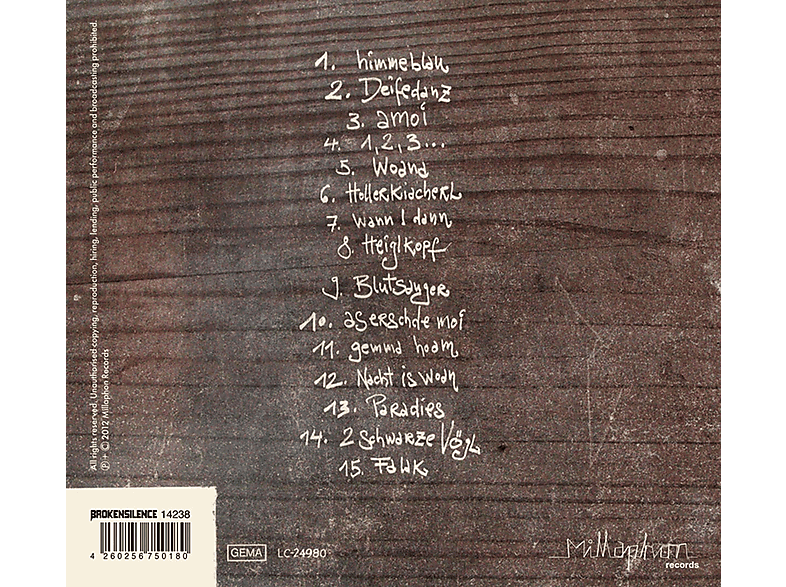 1. himmeblau
2. Deifedanz
3. amoi
4. 1, 2, 3...
5. Woana
6. Hollerkiacherl
7. wann I dann
8. Heiglkopf
9. Blutsauger
10. aserschde moi
11. gemma hoam
12. Nacht is woan
13. Paradies
14. 2 schwarze Vögl
15. Falak
All rights reserved. Unauthorised copying, reproduction, hiring, lending, public performance and broadcasting prohibited.
℗ + © 2012 Millaphon Records
BROKENSILENCE 14238
4 260256 750180
GEMA LC-24980
Millaphon
records